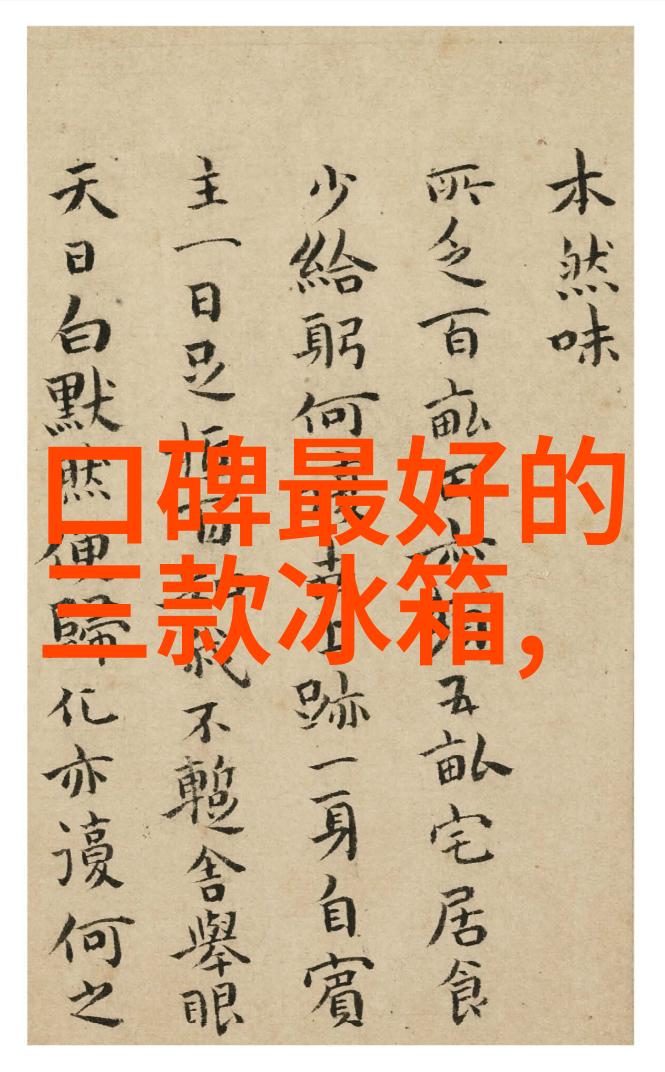 本然味
所乏百畝五畝宅居食
少給躬何上跡一身自賓
主一日足指百我不暫舍舉眼
天日白默然便歸化亦謾何之
口碑最好的
三款冰箱,